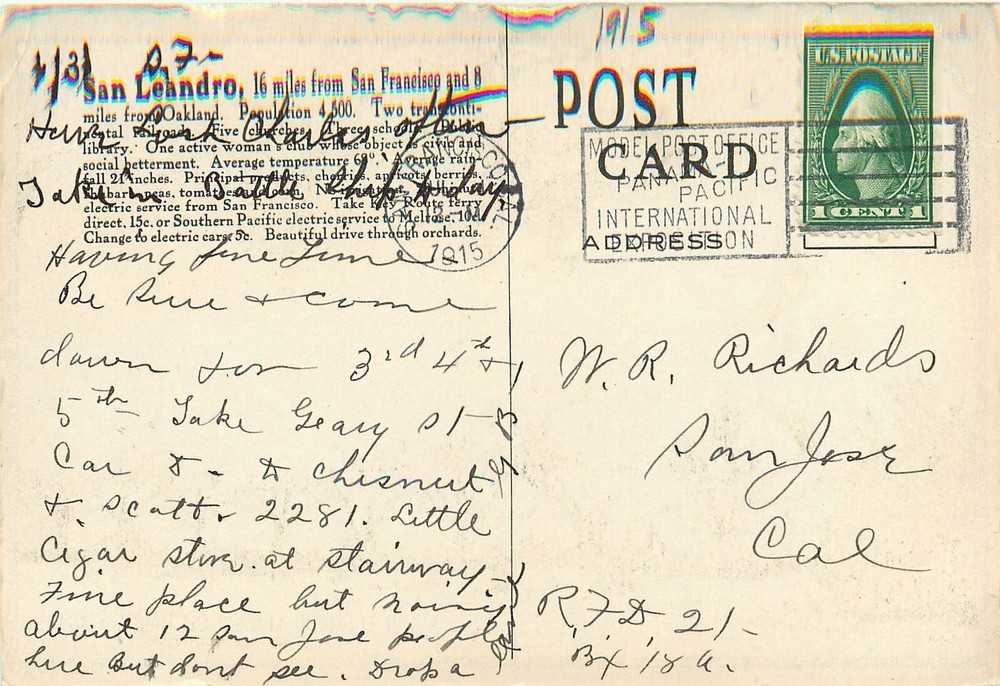 1915
1/31 S F-
San Leandro, 16 miles from San Francisco and 8
miles from Oakland. Population 4,500. Two transconti-
nental railroads. Five churches. Three schools.
library. One active woman's club whose object is civic and
social betterment. Average temperature 60°. Average rain-
fall 21 inches. Principal products, cherries, apricots, berries,
rhubarb, peas, tomatoes and corn.
electric service from San Francisco. Take Key Route ferry
direct, 15c. or Southern Pacific electric service to Melrose, 10c.
Change to electric cars, 5c. Beautiful drive through orchards.
Have
Take in Battle Ship today
Having fine Time
Be sure & come
down for 3rd 4th
5th Take Geary St
Car D - to Chesnut
& Scott. 2281. Little
Cigar store at stairway
Fine place but noisy
about 12 San Jose people
here But dont see. Drop a
Card
G B
POST CARD
ADDRESS
MODEL POST OFFICE
PANAMA
PACIFIC
INTERNATIONAL
EXPOSITION
CAL.
1915
U.S. POSTAGE
1 CENT 1
W. R. Richards
San Jose
Cal
R.F.D. 21-
Bx 18 a.